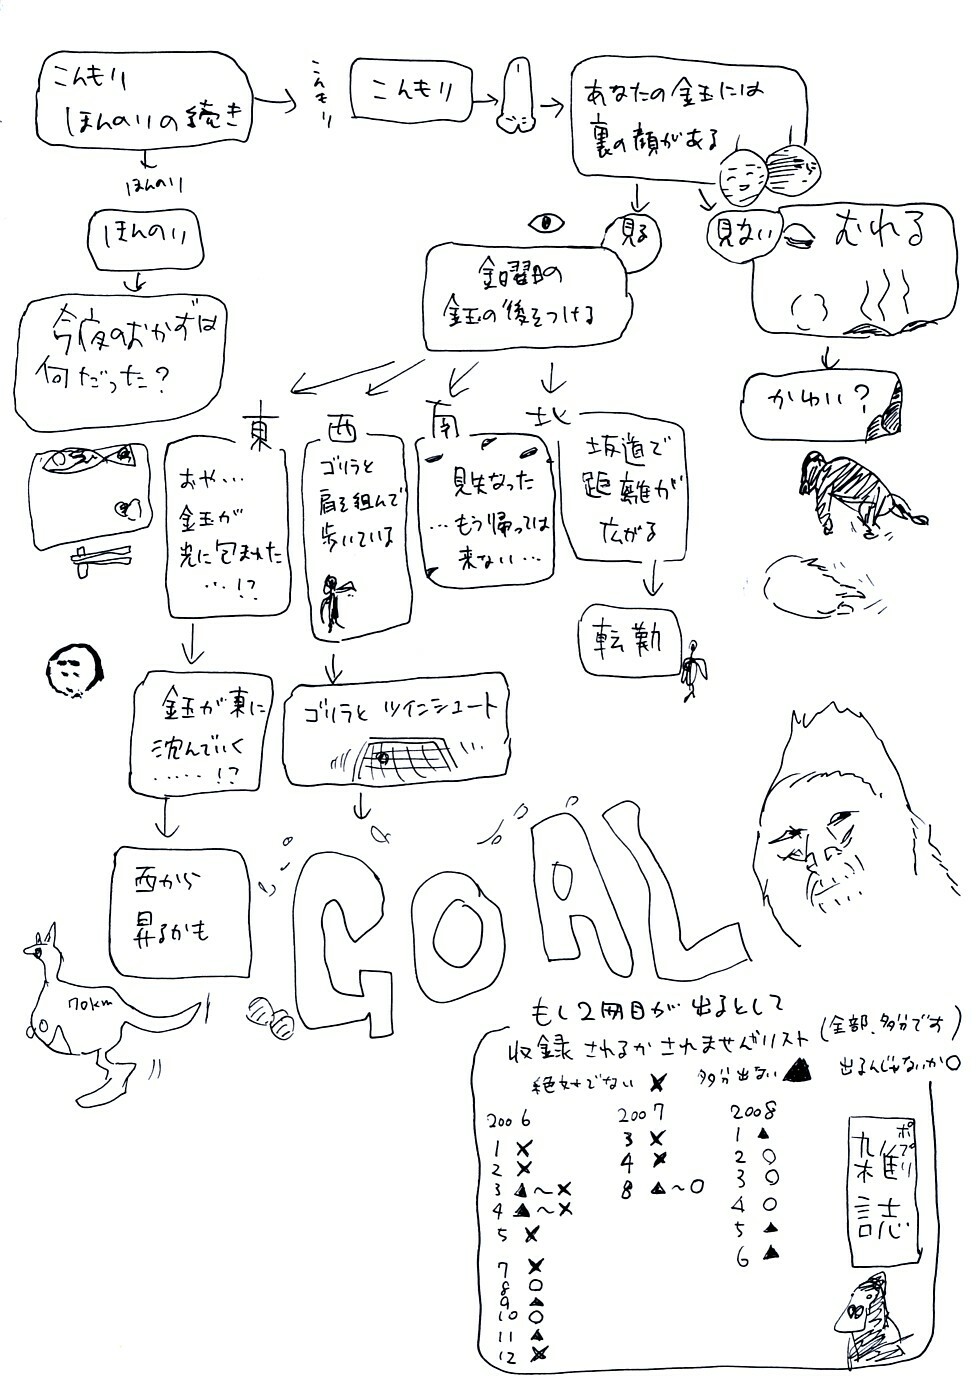 こんもり
ほんのりの続き
こんもり
こんもり
あなたの金玉には
裏の顔がある
ほんのり
ほんのり
今夜のおかずは
何だった?
見る
見ない
むれる
金曜日の
金玉の後をつける
かわいい?
東
西
南
北
おや…
金玉が
光に包まれた
…!?
ゴリラと
肩を組んで
歩いている
見失なった
…もう帰っては
来ない…
坂道で
距離が
広がる
転勤
金玉が東に
沈んでいく
……!?
ゴリラと ツインシュート
西から
昇るかも
GOAL
70km
もし2冊目が出るとして
収録されるかされませんがリスト (全部、多分です)
絶対でない × 多分出ない ▲ 出るんじゃないか ○
2006
1 ×
2 ×
3 ▲〜×
4 ▲〜×
5 ×
7 ×
8 ○
9 ▲
10 ○
11 ▲
12 ×
2007
3 ×
4 ×
8 ▲〜○
2008
1 ▲
2 ○
3 ○
4 ○
5 ▲
6 ▲
ポプリ
雑誌